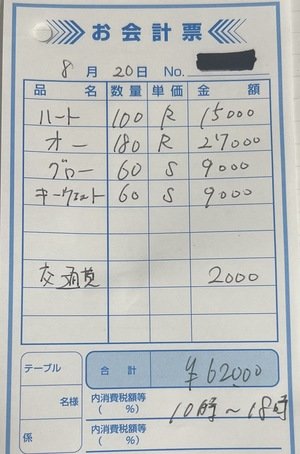 お会計票
8月20日 No.
品名 数量 単価 金額
ハート 100 R 15000
オー 180 R 27000
グロー 60 S 9000
キーウェスト 60 S 9000
交通費 2000
テーブル
名様
係
合計 ¥62000
内消費税額等
( %)
10時～18時
内消費税額等
( %)